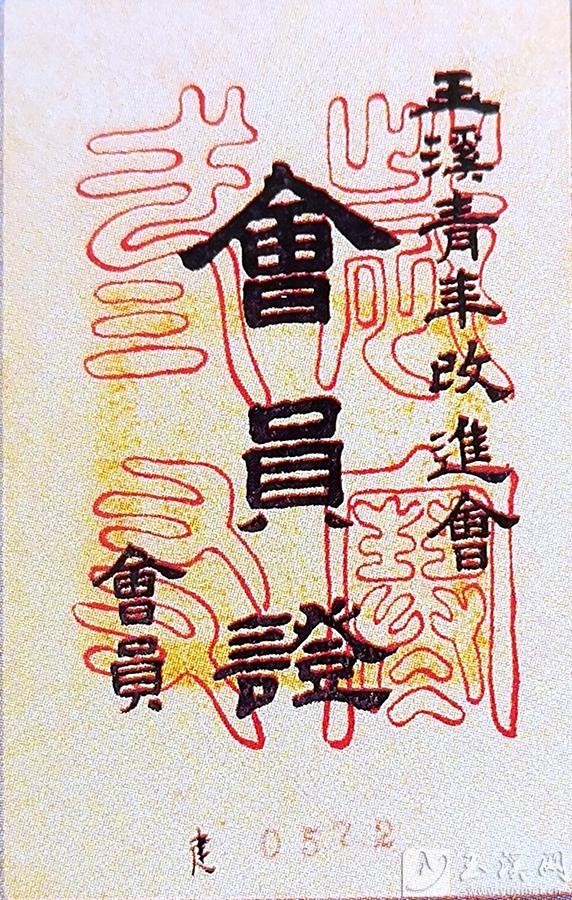 玉溪青年改進會
會員證
會員
建 0572
玉溪网